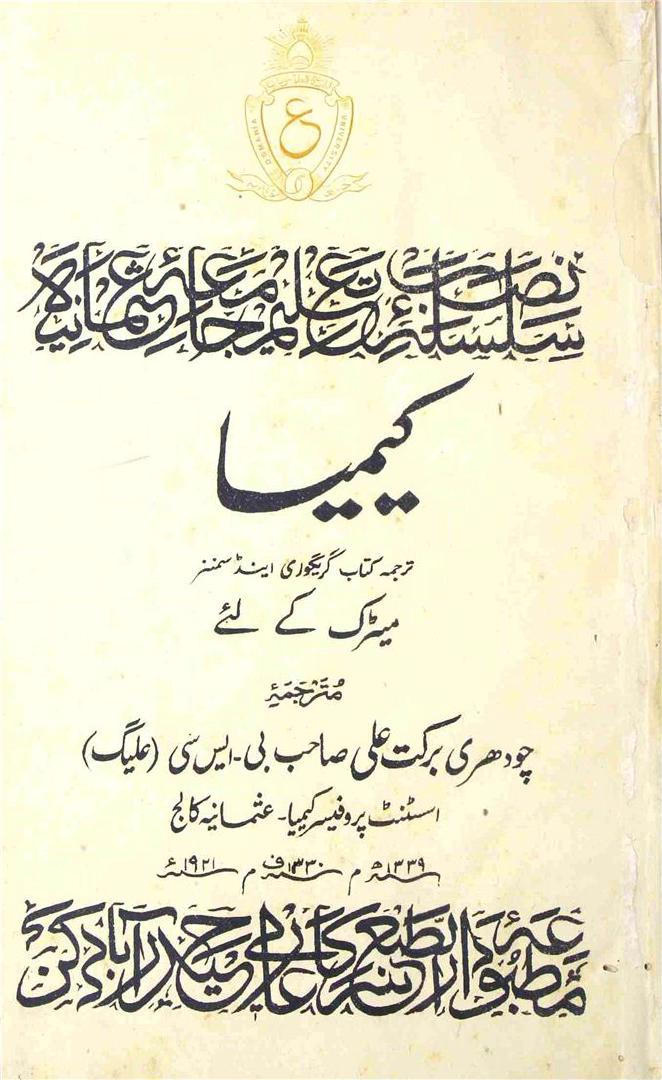 OSMANIA UNIVERSITY
ع
سلسلۂ نصاب تعلیم جامعۂ عثمانیہ
کیمیا
ترجمہ کتاب گریگوری اینڈ سمنز
میٹرک کے لئے
مُترجمۂ
چودھری برکت علی صاحب بی-ایس سی (علیگ)
اسسٹنٹ پروفیسر کیمیا- عثمانیہ کالج
۱۳۳۹ھ م ۱۳۳۰ف م ۱۹۲۱ء
مطبوعۂ دارالطبع سرکار عالی حیدرآباد دکن